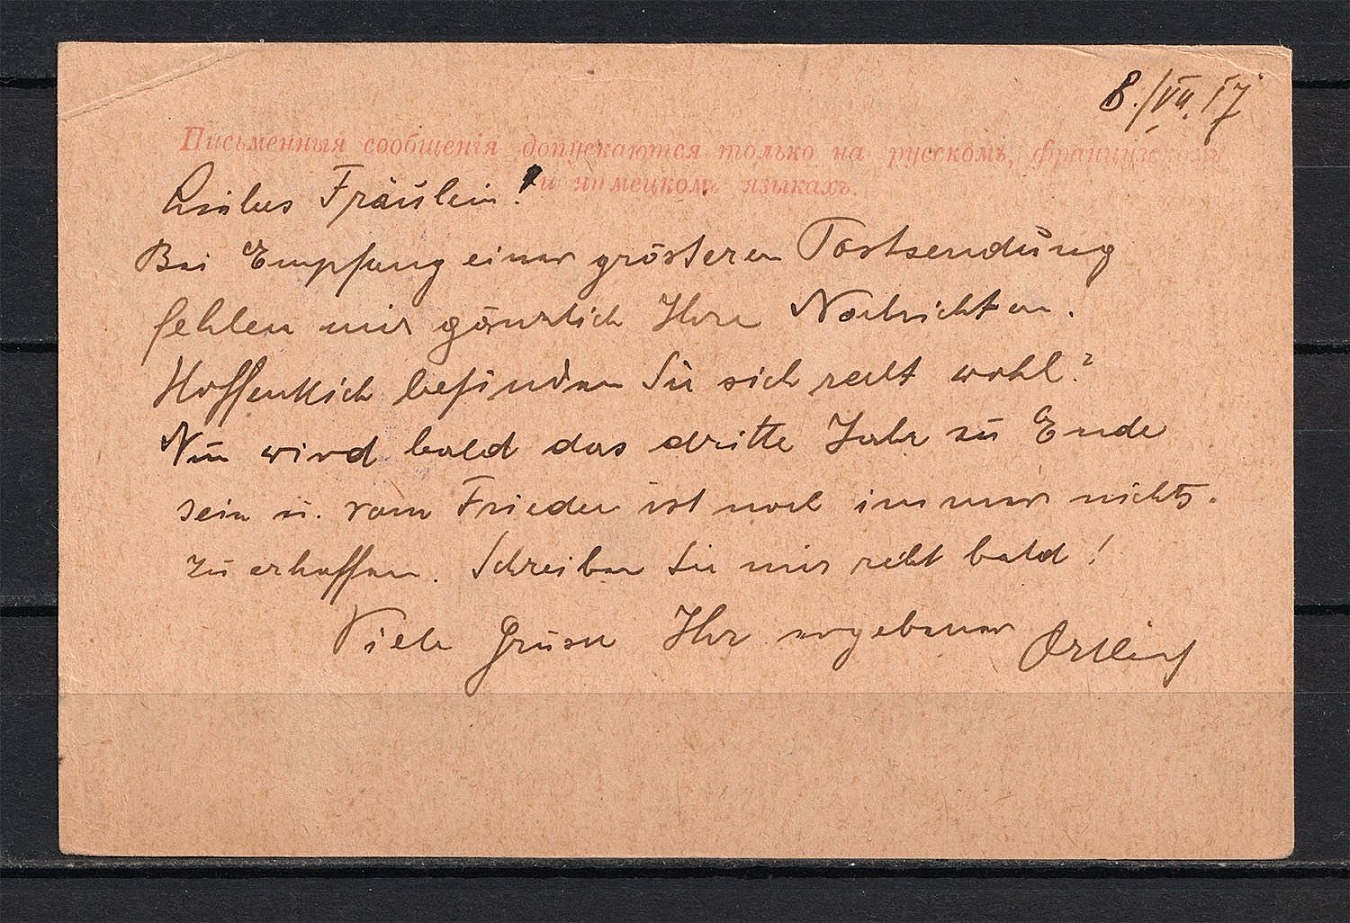 8./VII. 17
Письменныя сообщенія допускаются только на русскомъ, французскомъ
и нѣмецкомъ языкахъ.
Liebes Fräulein!
Bei Empfang einer grösseren Postsendung
fehlen mir gänzlich Ihre Nachrichten.
Hoffentlich befinden Sie sich recht wohl?
Nun wird bald das dritte Jahr zu Ende
sein u. vom Frieden ist noch immer nichts.
zu erhoffen. Schreiben Sie mir recht bald!
Viele Grüsse Ihr ergebener